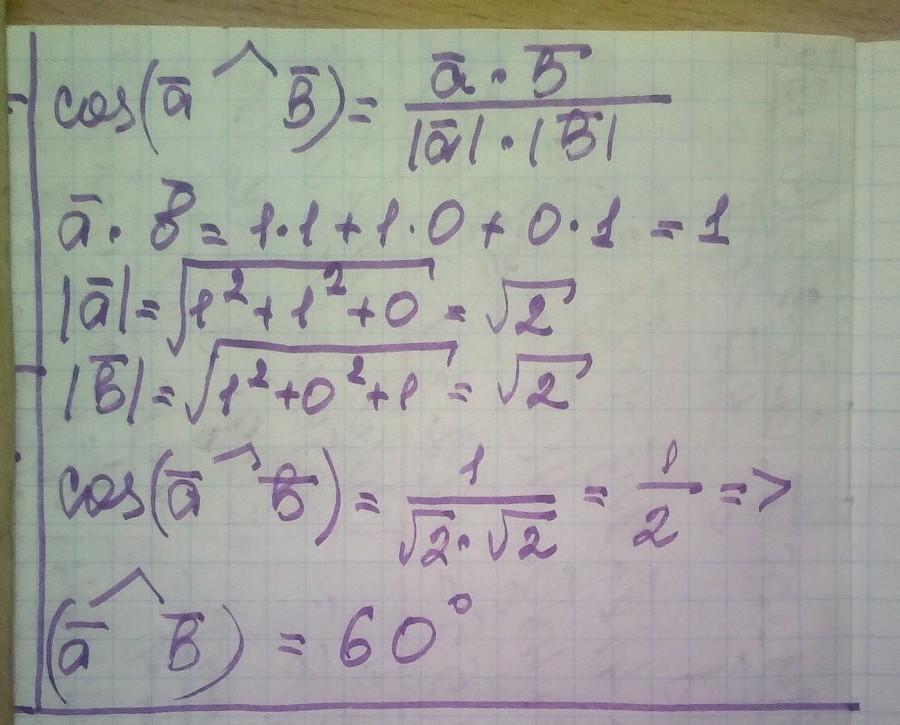 cos(a̅ ^ b̅) = a̅ · b̅ / |a̅| · |b̅|
a̅ · b̅ = 1·1 + 1·0 + 0·1 = 1
|a̅| = √(1² + 1² + 0) = √2
|b̅| = √(1² + 0² + 1) = √2
cos(a̅ ^ b̅) = 1 / √2 · √2 = 1/2 =>
(a̅ ^ b̅) = 60°